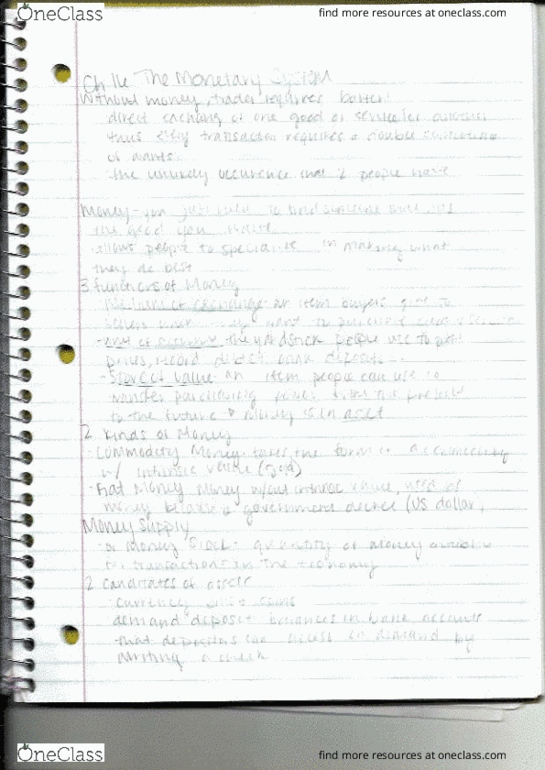 OneClass
find more resources at oneclass.com
Ch 16 The Monetary System
Without money, trade requires barter
direct exchang of one good or service for another
thus every transaction requires a double
of wants.
the unlikely occurence that 2 people have
Money - you just need to find someone
the good you
allows people to specialize in making what
they do best
3 functions of Money
exchange an item buyers give to
sellers when they want to purchase
unit of account the yardstick people use to post
prices, record debt
- Store of value an item people can use to
transfer purchasing power from the present
to the future money is an asset
2 Kinds of Money
- Commodity Money takes the form a commodity
w/ intrinsic value (gold)
- Fiat Money Money w/out intrinsic value, used as
money because government decree (US dollar)
Money Supply
or Money Stock - quantity of money available
for transactions in the economy
2 candidates of assets
- currency
demand deposit balances in bank accounts
that depositors can access on demand by
writing a check
OneClass
find more resources at oneclass.com